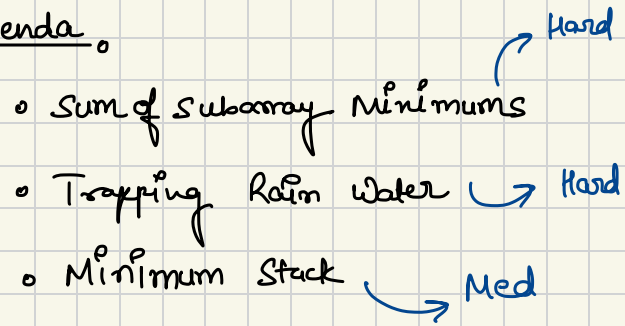 enda.
Hard
• Sum of Subarray Minimums
• Trapping Rain Water → Hard
• Minimum Stack → Med